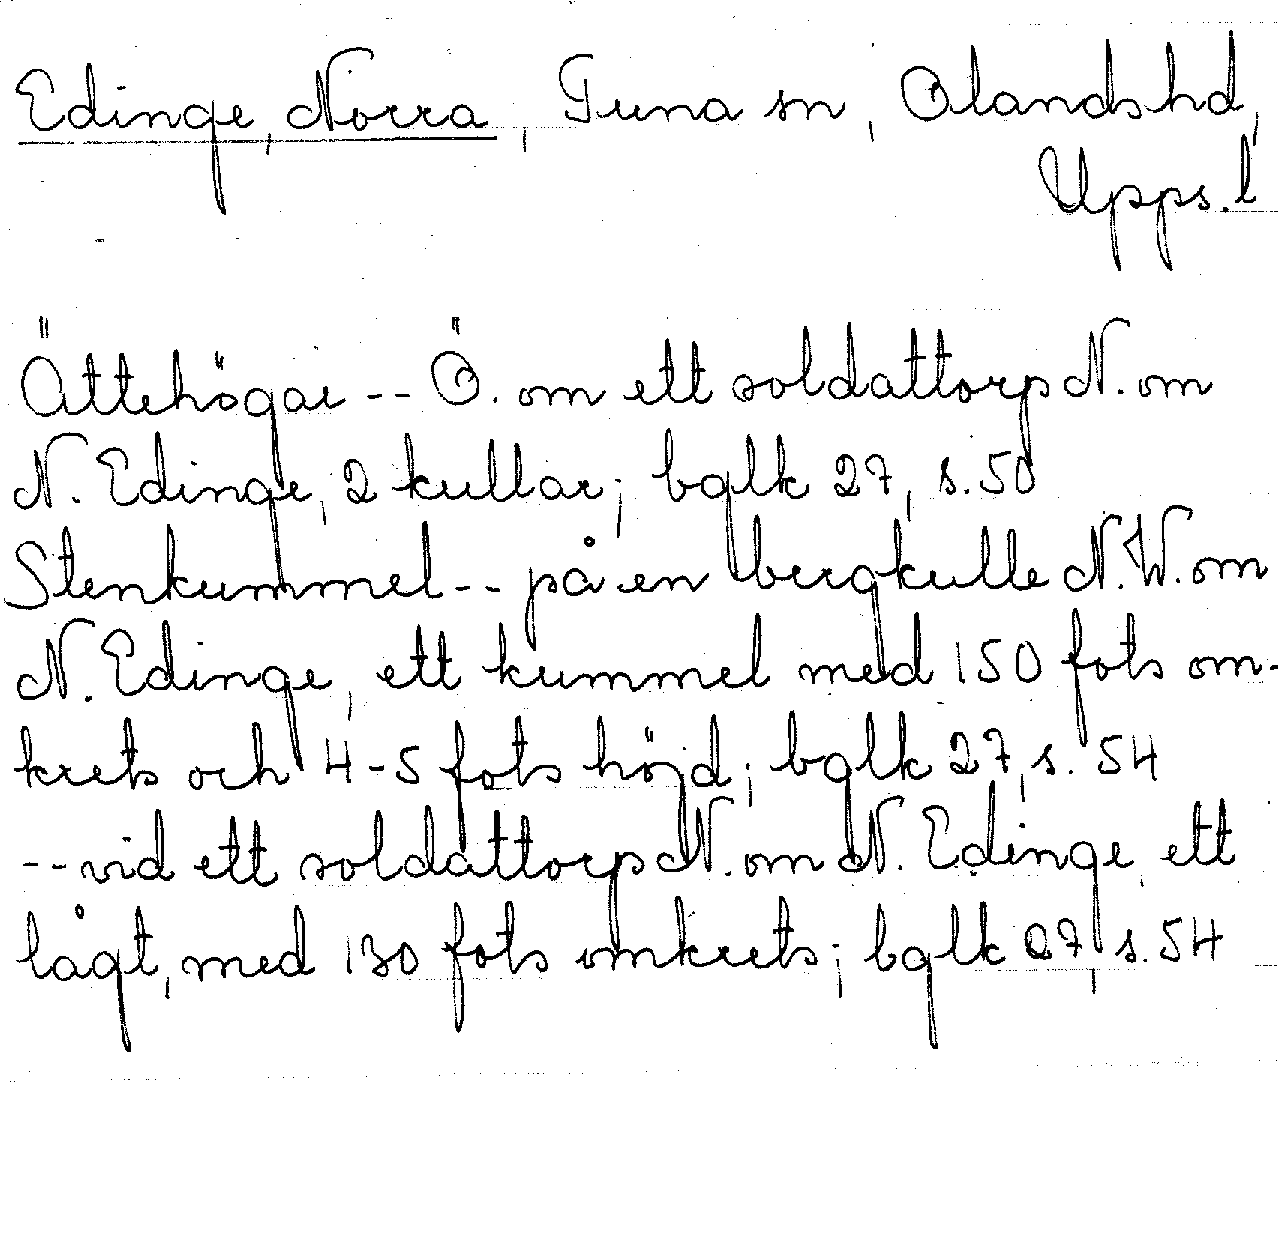 Edinge, Norra, Tuna sn, Olands hd,
Upps. l
Ättehögar -- Ö. om ett soldattorp N. om
N. Edinge, 2 kullar; bglk 27, s. 50
Stenkummel -- på en bergkulle N.W. om
N. Edinge, ett kummel med 150 fots om-
krets och 4-5 fots höjd; bglk 27, s. 54
-- vid ett soldattorp N. om N. Edinge, ett
lågt, med 130 fots omkrets; bglk 27, s. 54